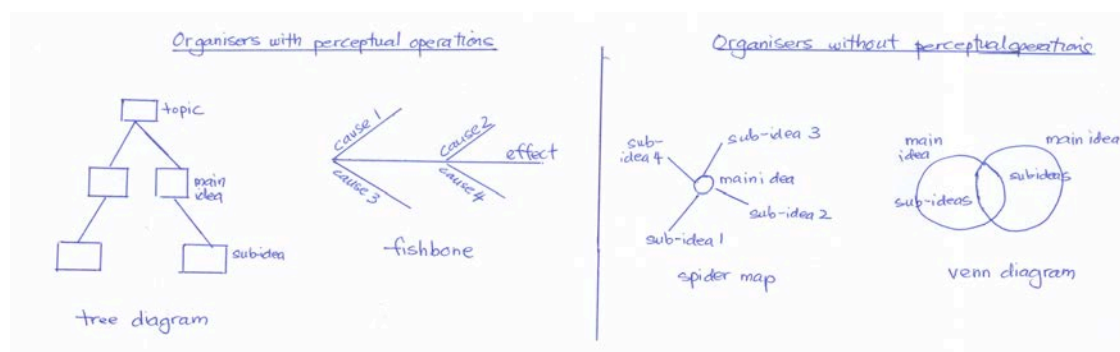 Organisers with perceptual operations
topic
main
idea
subidea
tree diagram
cause 1
cause 2
effect
cause 3
cause 4
fishbone
Organisers without perceptual operations
sub-
idea 4
sub-idea 3
main idea
sub-idea 2
sub-idea 1
spider map
main
idea
main idea
sub-ideas
subideas
venn diagram